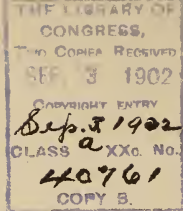 THE LIBRARY OF
CONGRESS,
TWO COPIES RECEIVED
SEP. 3 1902
COPYRIGHT ENTRY
Sep. 3 1902
CLASS a XXc. No.
40761
COPY B.